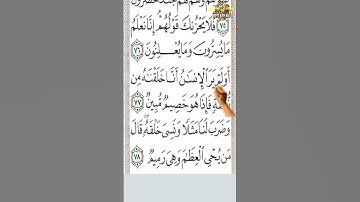 وَهُمْ لَهُمْ جُندٌ مُّحْضَرُونَ
﴿٧٥﴾ فَلَا يَحْزُنكَ قَوْلُهُمْ إِنَّا نَعْلَمُ
مَا يُسِرُّونَ وَمَا يُعْلِنُونَ ﴿٧٦﴾
أَوَلَمْ يَرَ الْإِنسَٰنُ أَنَّا خَلَقْنَٰهُ مِن
فَإِذَا هُوَ خَصِيمٌ مُّبِينٌ ﴿٧٧﴾
وَضَرَبَ لَنَا مَثَلًا وَنَسِىَ خَلْقَهُۥ قَالَ
مَن يُحْىِ الْعِظَٰمَ وَهِىَ رَمِيمٌ ﴿٧٨﴾